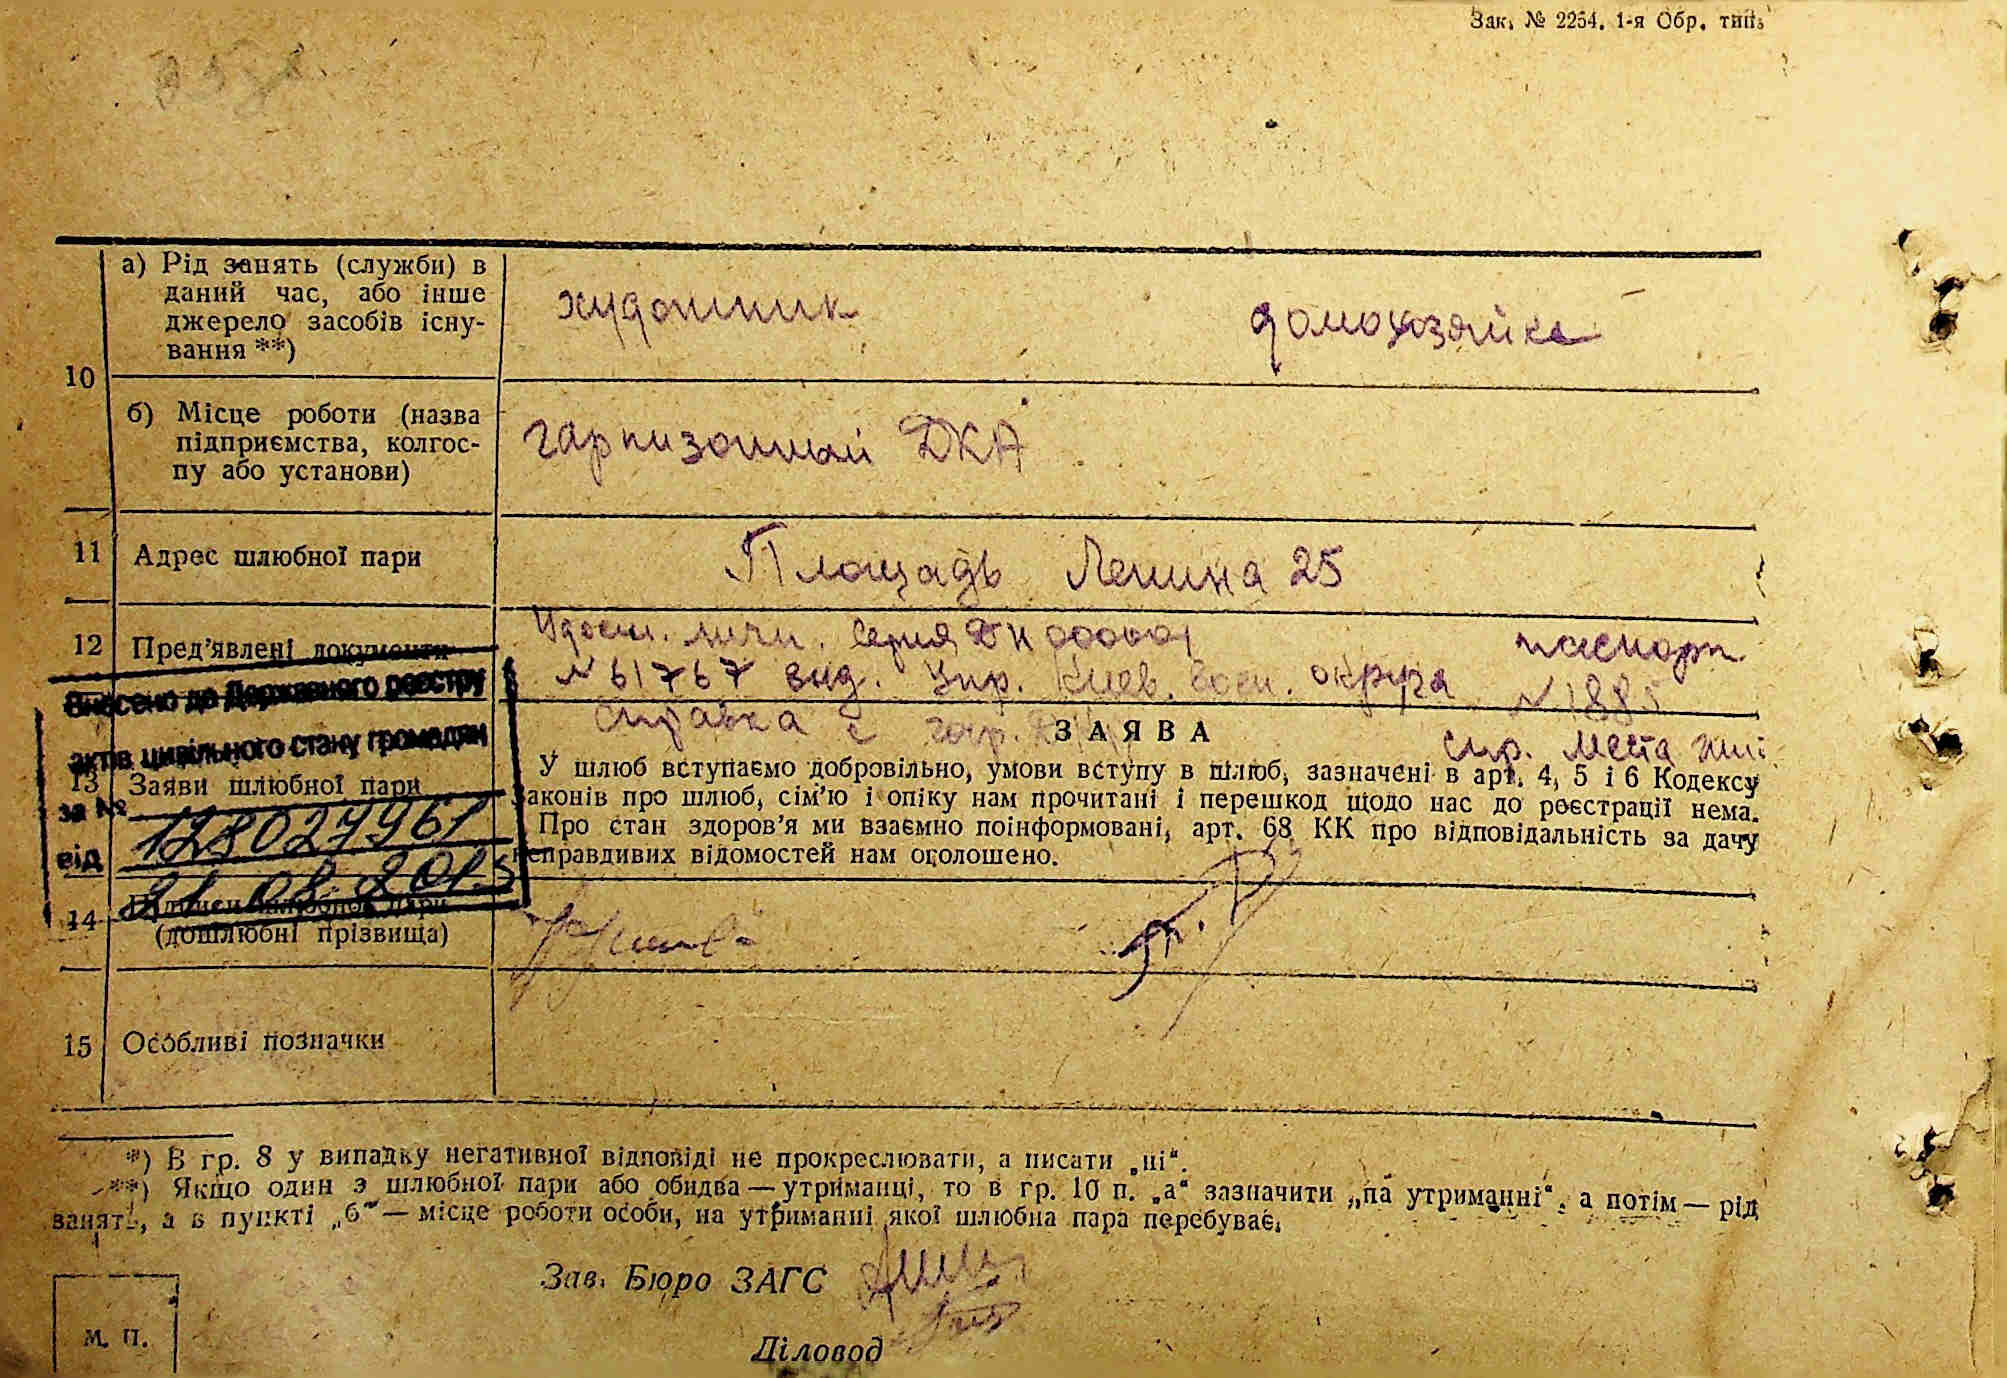 Зак. № 2254. 1-я Обр. тип.
а) Рід занять (служби) в
даний час, або інше
джерело засобів існу-
вання **)
художник домохозяйка
10
б) Місце роботи (назва
підприємства, колгос-
пу або установи)
гарнизонный ДКА
11 Адрес шлюбної пари
Площадь Ленина 25
12 Пред'явлені документи
Удост. личн. серия
паспорт
№ 61767 выд. Упр. Киев. воен. округа № 1885
справка с
спр. места
Внесено до Державного реєстру
актів цивільного стану громадян
за № 128027961
від 21.08.2015
13 Заяви шлюбної пари
ЗАЯВА
У шлюб вступаємо добровільно, умови вступу в шлюб, зазначені в арт. 4, 5 і 6 Кодексу
законів про шлюб, сім'ю і опіку нам прочитані і перешкод щодо нас до реєстрації нема.
Про стан здоров'я ми взаємно поінформовані, арт. 68 КК про відповідальність за дачу
неправдивих відомостей нам оголошено.
14 Підписи шлюбної пари
(дошлюбні прізвища)
15 Особливі позначки
*) В гр. 8 у випадку негативної відповіді не прокреслювати, а писати „ні“.
**) Якщо один з шлюбної пари або обидва — утриманці, то в гр. 10 п. „а“ зазначити „на утриманні“, а потім — рід
занять, а в пункті „б“ — місце роботи особи, на утриманні якої шлюбна пара перебуває.
Зав. Бюро ЗАГС
Діловод
М. П.